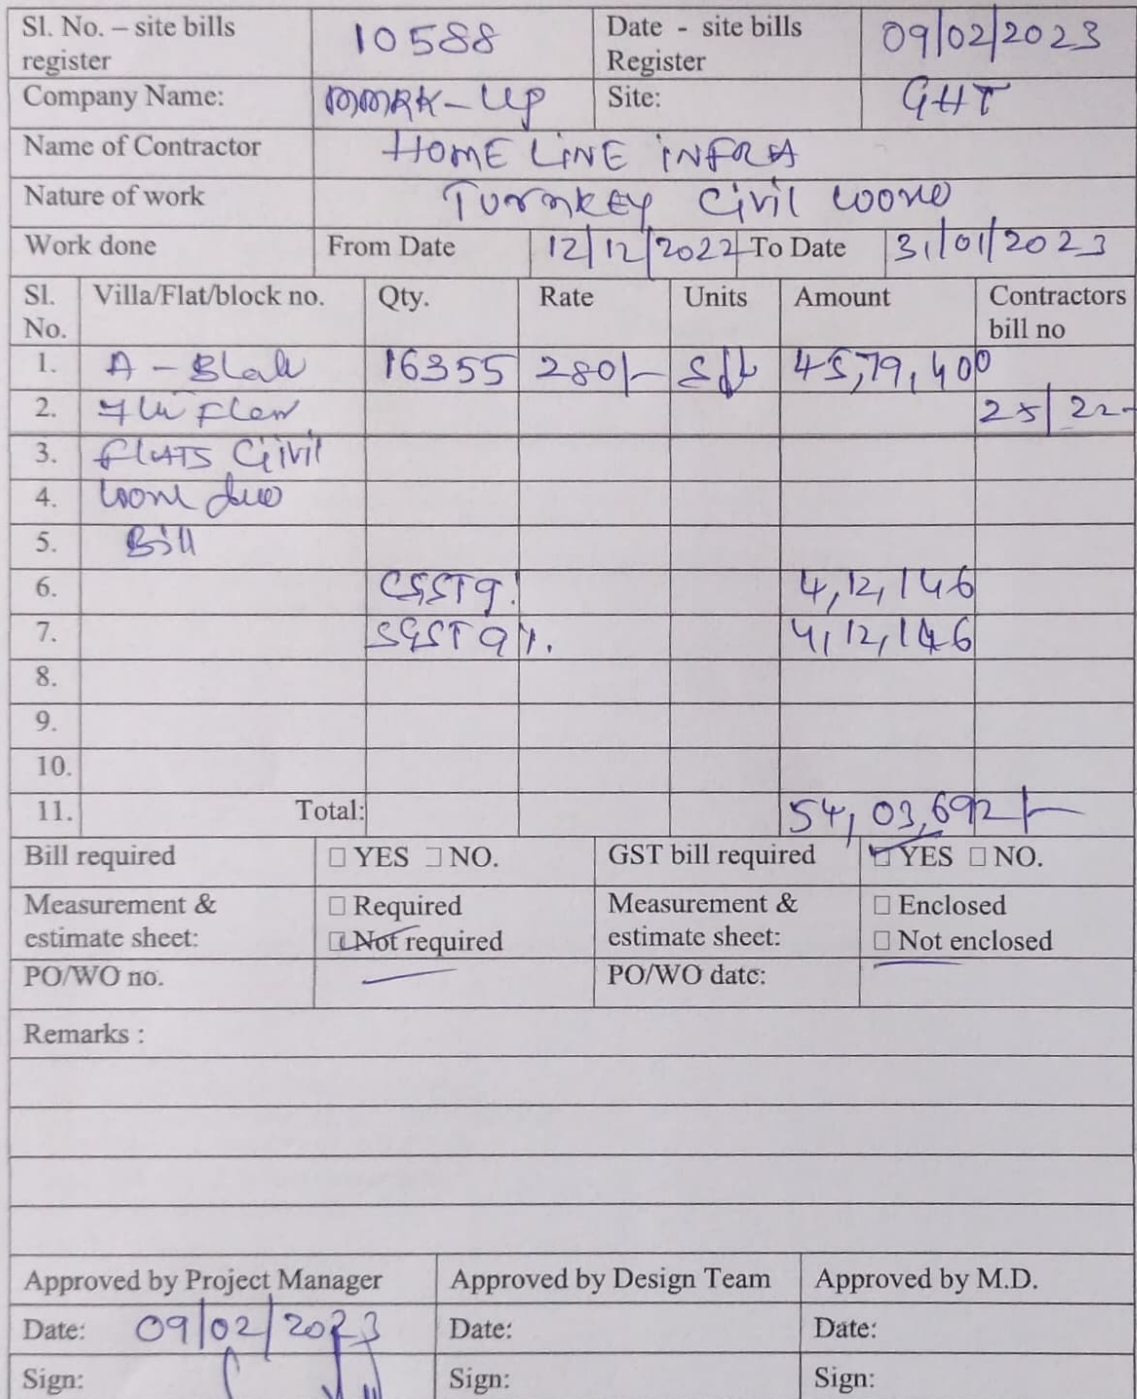 Sl. No. – site bills register 10588 Date - site bills Register 09/02/2023
Company Name: MMRK-UP Site: GHT
Name of Contractor HOME LINE INFRA
Nature of work Turnkey Civil
Work done From Date 12/12/2022 To Date 31/01/2023
Sl. No. Villa/Flat/block no. Qty. Rate Units Amount Contractors bill no
1. A - 16355 280/- Sft 45,79,400
2. 25/22-
3. FLATS Civil
4.
5. Bill
6. CGST 9. 4,12,146
7. SGST 9%. 4,12,146
8.
9.
10.
11. Total: 54,03,692/-
Bill required ☐ YES ☐ NO. GST bill required ☑ YES ☐ NO.
Measurement & estimate sheet: ☐ Required ☑ Not required Measurement & estimate sheet: ☐ Enclosed ☐ Not enclosed
PO/WO no. — PO/WO date:
Remarks :
Approved by Project Manager Approved by Design Team Approved by M.D.
Date: 09/02/2023 Date: Date:
Sign: Sign: Sign: